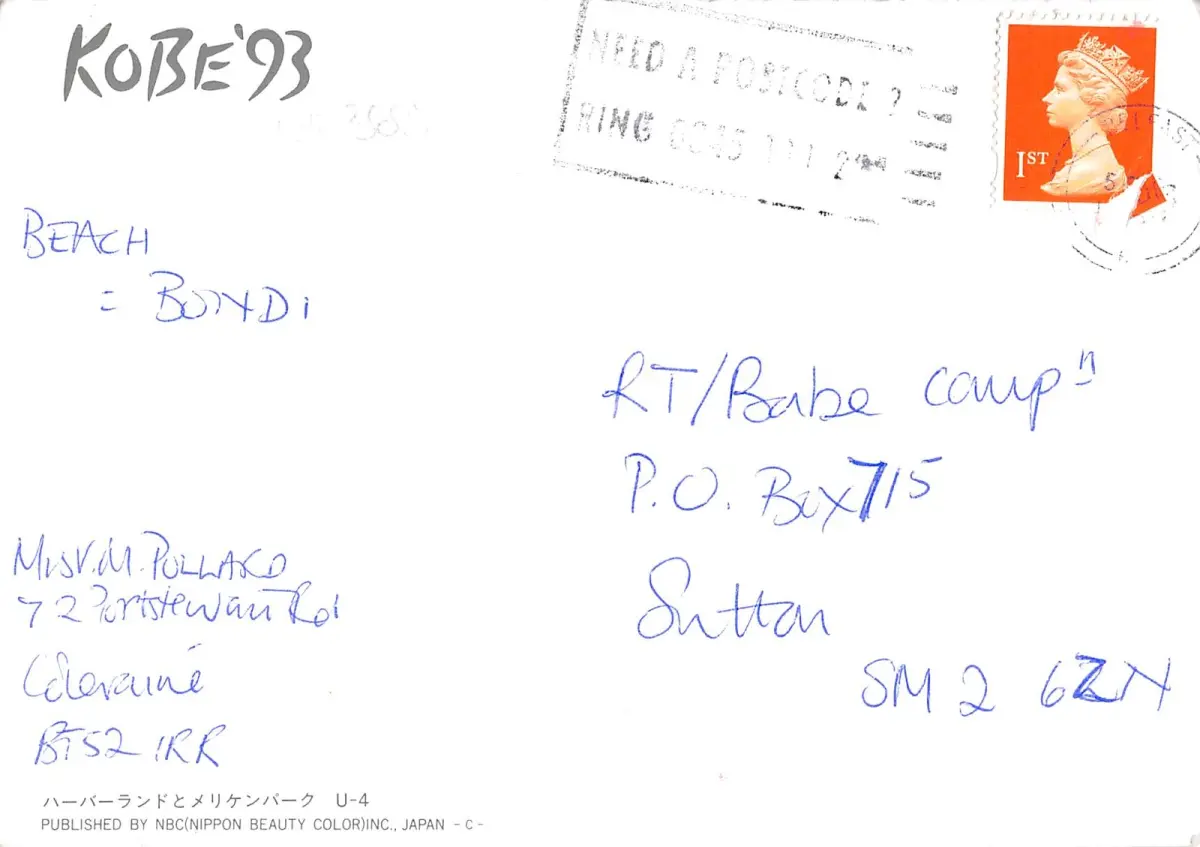 KOBE'93
NEED A POSTCODE ?
RING 0345 111 2
1ST
BELFAST
BEACH
= BONDI
RT/Babe Camp"
P.O. Box 715
Sutton
SM2 6ZN
M. POLLARD
72 Portstewart Rd
Coleraine
BT52 1RR
ハーバーランドとメリケンパーク U-4
PUBLISHED BY NBC(NIPPON BEAUTY COLOR)INC., JAPAN - C -